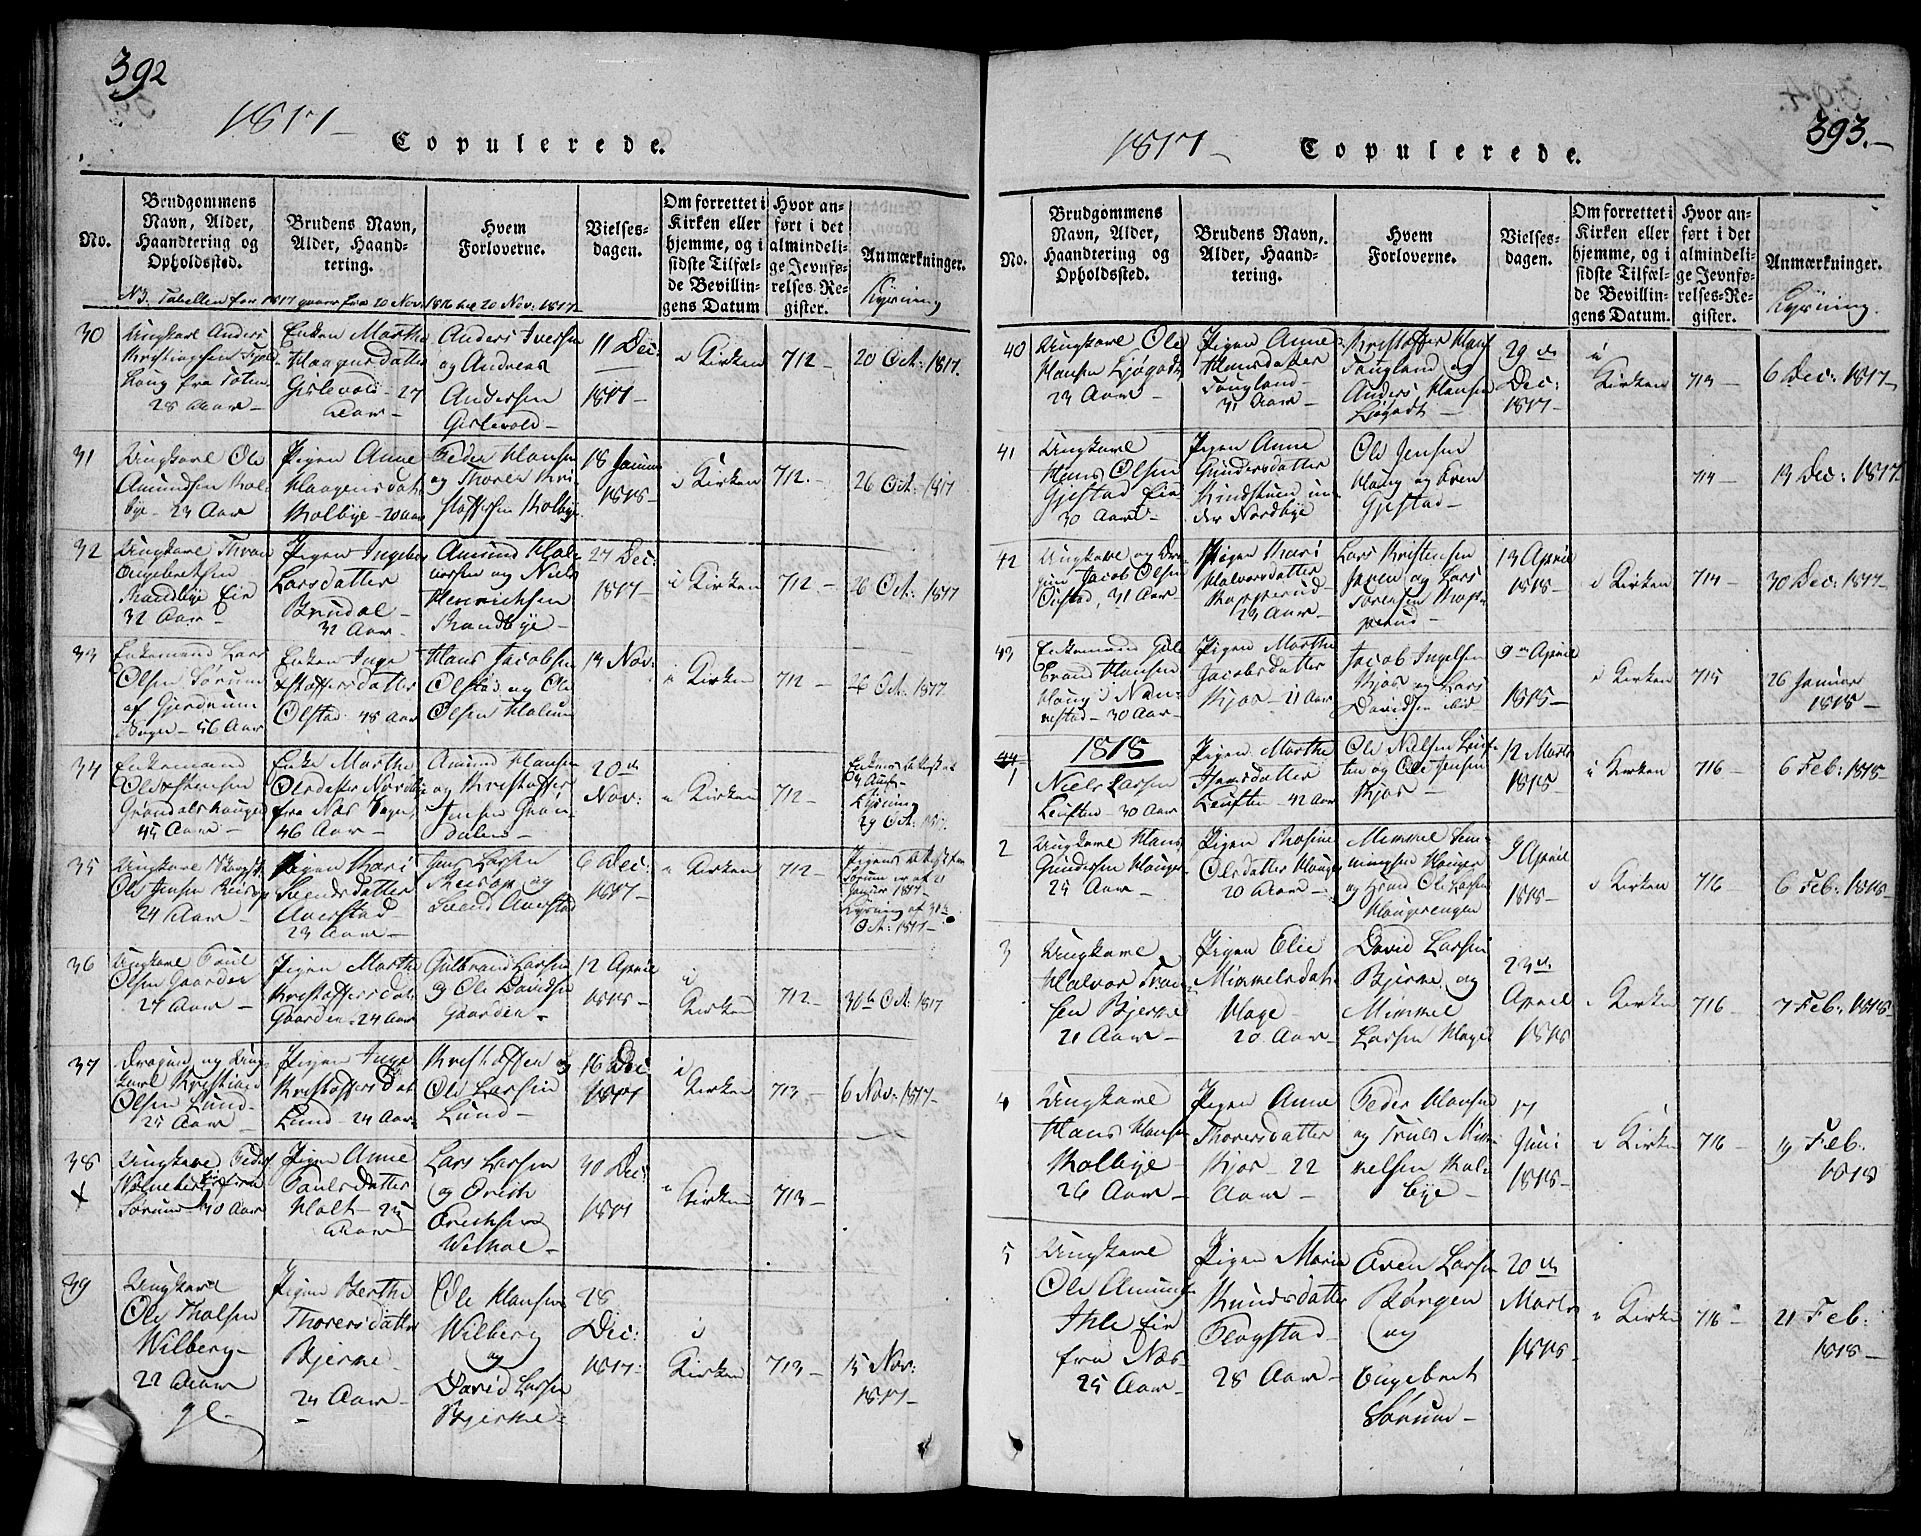 392
1817
Copulerede.
No.
Brudgommens
Navn, Alder,
Haandtering og
Opholdssted.
Brudens Navn,
Alder, Haand-
tering.
Hvem
Forloverne.
Vielses-
dagen.
Om forrettet i
Kirken eller
hjemme, og i
sidste Tilfæl-
de Bevillin-
gens Datum
Hvor an-
ført i det
almindeli-
ge Jevnfø-
relses-Re-
gister.
Anmærkninger.
Lysning
NB. Tabellen for 1817 gaaer fra 20 Nov: 1816 til 20 Nov: 1817
30
Ungkarl Anders
fra Toten
28 Aar
Enken Marthe
Haagensdatter
Gislevold - 27
Aar
Anders Iversen
og Andreas
Andersen
Gislevold
11 Dec:
1817
i Kirken
712
20 Oct: 1817.
31
Ungkarl Ole
Amundsen Kol-
bye - 23 Aar
Pigen Anne
Haagensdat:
Kolbye - 20 Aar
Peder Hansen
og Thorer Kri-
stoffersen Kolbye
18 Januar
1818
i Kirken
712
26 Oct: 1817
32
Ungkarl Thron
Engebretsen
Randbye Eie
32 Aar
Pigen Ingebor
Larsdatter
Brudal
32 Aar
Amund Hal-
vorsen og Niels
Henrichsen
Randbye
27 Dec:
1817
i Kirken
712
26 Oct: 1817
33
Enkemand Lars
Olsen Sørum
af Gjerdrum
Sogn - 56 Aar
Enken Inge
Kristoffersdatter
Olstad 48 Aar
Hans Jacobsen
Olstad og Ole
Olsen Holum
13 Nov:
i Kirken
712
26 Oct: 1817
34
Enkemand
Ole Jensen
Grøndalshaugen
45 Aar
Enke Marthe
Olsdatter Nordbye
fra Næs Sogn
46 Aar
Amund Hansen
og Kristoffer
Jensen Grøn-
dalen
20de
Nov:
i Kirken
712
Lysning
29 Oct: 1817
35
Ole Jensen
24 Aar
Pigen Kari
Svendsdatter
Aurstad
23 Aar
Jens Larsen
og
Svend Aurstad
6 Dec:
1817
i Kirken
712
Pigens Attest fra
Sørum er af 2
Januar 1817
Lysning af 30te
Oct: 1817
36
Ungkarl Paul
Olsen Gaarder
24 Aar
Pigen Marthe
Kristoffersdat:
Gaarden - 24 Aar
Gulbrand Larsen
og Ole Davidsen
Gaarden
12 April
1818
i
Kirken
712
30te Oct: 1817
37
Dragun og Ung-
karl Kristian
Olsen Lund
25 Aar
Pigen Inge
Kristoffersdat:
Lund - 24 Aar
Kristoffer og
Ole Larsen
Lund
16 Dec:
1817
i
Kirken
713
6 Nov: 1817
38
Ungkarl Peder
fra
Sørum 30 Aar
Pigen Anne
Paulsdatter
Holt - 25
Aar
Lars Larsen
og Erich
Erichsen
30 Dec:
1817
i Kirken
713
39
Ungkarl
Ole Tholsen
Wilberg
22 Aar
Pigen Berthe
Thorersdatter
Bjerke
24 Aar
Ole Hansen
Wilberg
og
David Larsen
Bjerke
28
Dec:
1817
i
Kirken
713
15 Nov:
1817
393.
1817
Copulerede.
No.
Brudgommens
Navn, Alder,
Haandtering og
Opholdssted.
Brudens Navn,
Alder, Haand-
tering.
Hvem
Forloverne.
Vielses-
dagen.
Om forrettet i
Kirken eller
hjemme, og i
sidste Tilfæl-
de Bevillin-
gens Datum.
Hvor an-
ført i det
almindeli-
ge Jevnfø-
relses-Re-
gister.
Anmærkninger.
Lysning.
40
Ungkarl Ole
Hansen Ljøgodt
23 Aar
Pigen Anne
Hansdatter
Fougland
31 Aar
Kristoffer Hans:
Fougland og
Anders Hansen
Ljøgodt
29de
Dec:
1817
i
Kirken
713
6 Dec: 1817
41
Ungkarl
Hans Olsen
Gjestad Eie
30 Aar
Pigen Anne
Gundersdatter
un-
der Nordbye
Ole Jensen
Haug og Even
Gjestad
714
13 Dec: 1817
42
Ungkarl og Dra-
gun Jacob Olsen
31 Aar
Pigen Kari
Halvorsdatter
Kopperud
23 Aar
Lars Kristensen
og Lars
Sørensen Kop-
perud
13 April
1818
i Kirken
714
30 Dec: 1817
43
Enkemand Gul-
brand Hansen
Haug i Nan-
nestad - 30 Aar
Pigen Marthe
Jacobsdatter
Kjos - 21 Aar
Jacob Ingelsen
Kjos og Lars
Davidsen
9de April
1818
i Kirken
715
26 Januar
1818
44
1
1818
Niels Larsen
Leuften 30 Aar
Pigen Marthe
Hansdatter
Leuften 42 Aar
Ole Nielsen Leuf-
ten og Ole Jensen
Kjos
12 Marts
1818
i Kirken
716
6 Feb: 1818
2
Ungkarl Hans
Gundersen Hauger
25 Aar
Pigen Rosine
Olsdatter Hauger
20 Aar
Mimmel Hem-
mingsen Hauger
og Ole Larsen
Haugerengen
9 April
1818
i Kirken
716
6 Feb: 1818
3
Ungkarl
Halvor Iver-
sen Bjerke
21 Aar
Pigen Elie
Mimmelsdat:
Hage
20 Aar
David Larsen
Bjerke og
Mimmel
Larsen Hage
23de
April
1818
i Kirken
716
7 Feb: 1818
4
Ungkarl
Hans Hansen
Kolbye
26 Aar
Pigen Anne
Thorersdatter
Kjos - 22
Aar
Peder Hansen
og Truls Mim-
melsen Kol-
bye
17
Juni
1818
i Kirken
716
19 Feb.
1818
5
Ungkarl
Ole Amunds:
Ihle Eie
fra Næs
25 Aar
Pigen Marie
Knudsdatter
Flogstad
28 Aar
Even Larsen
Børgen
og
Engebret
Sørum
20de
Marts
1818
i Kirken
716
21 Feb:
1818